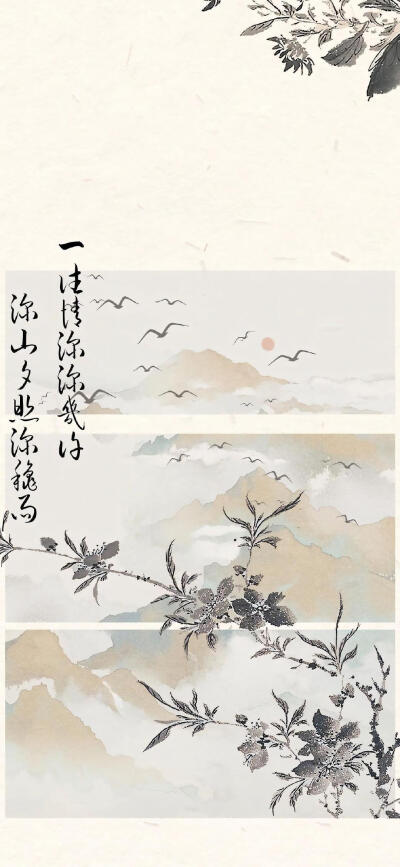 一往情深深幾许
深山夕照深秋雨